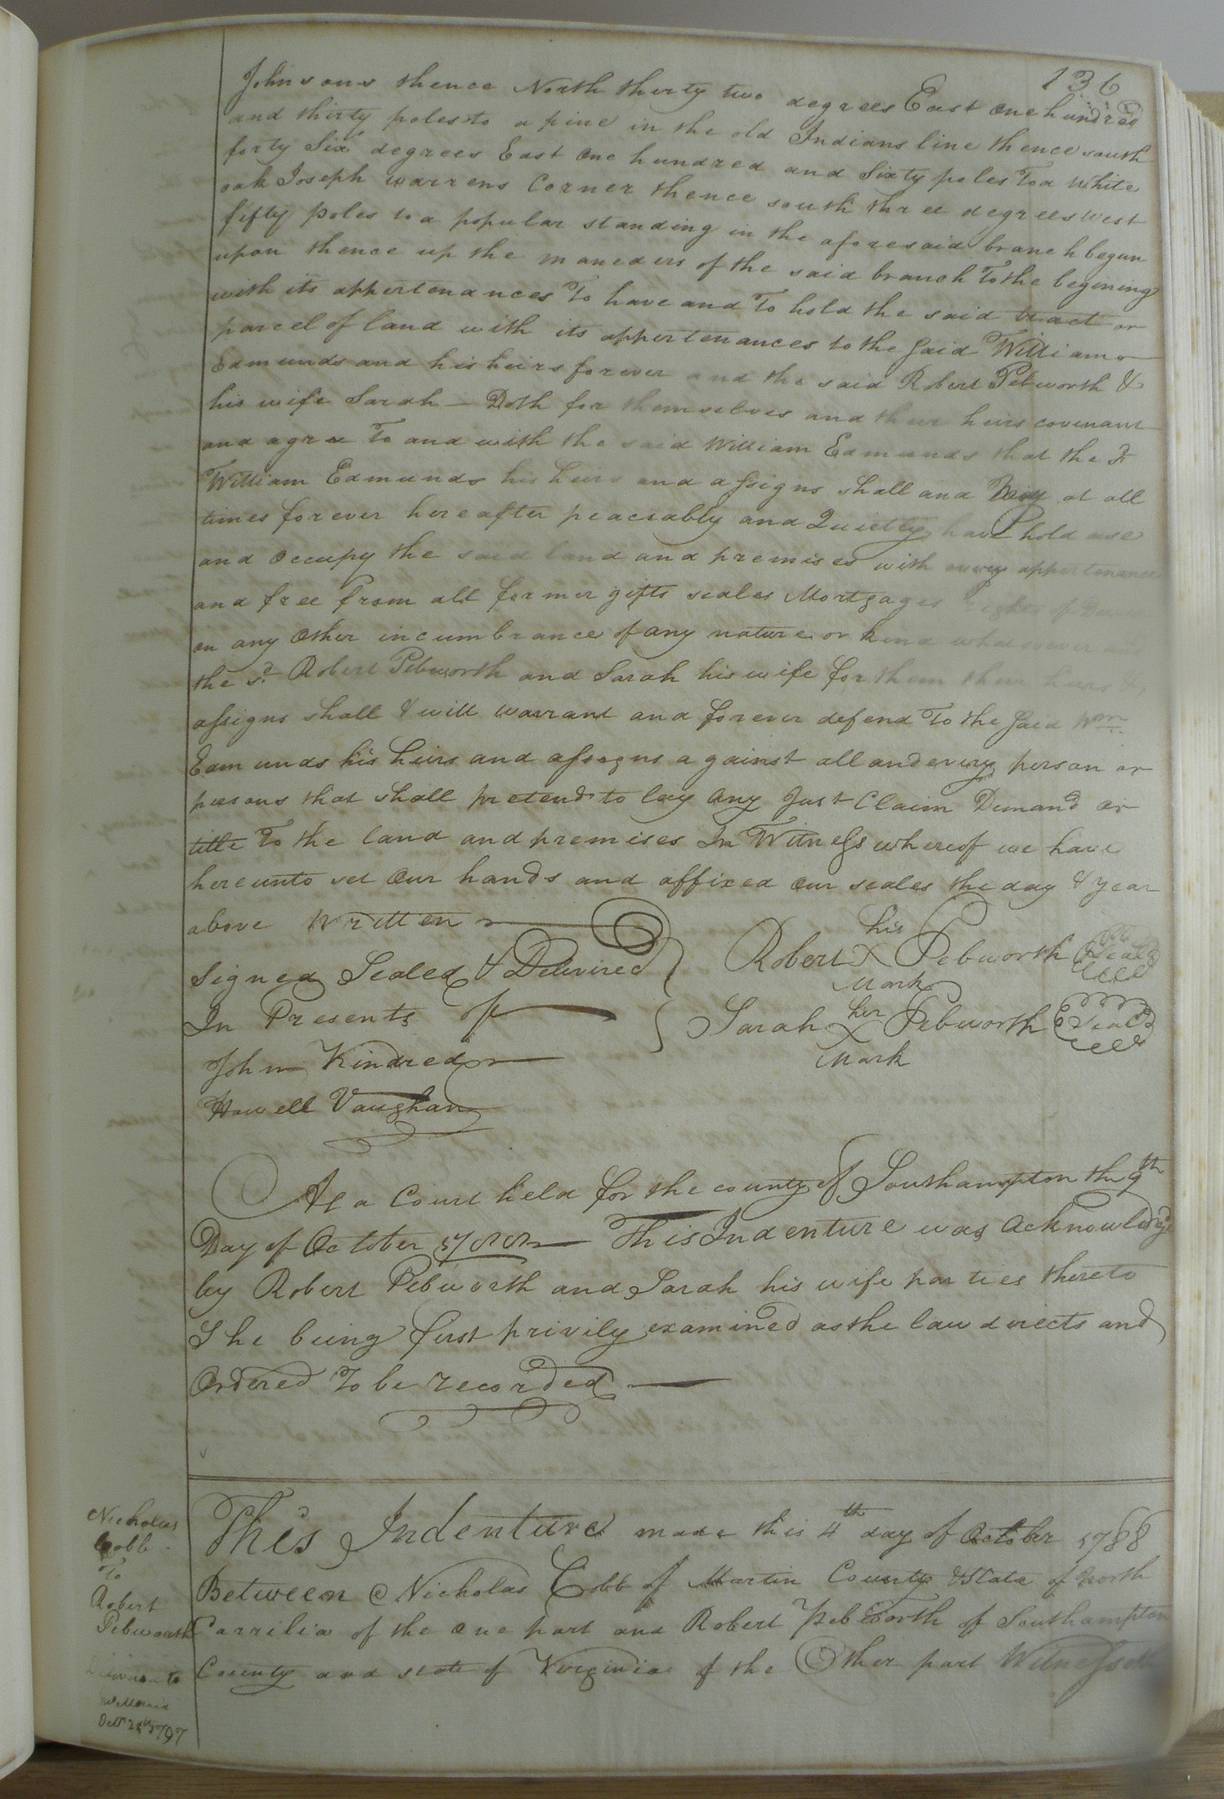 136
Johnsons thence North thirty two degrees East one hundred
and thirty poles to a pine in the old Indians line thence south
forty Six degrees East one hundred and Sixty poles To a White
oak Joseph warrens Corner thence south three degrees west
fifty poles to a popular standing in the aforesaid branch began
upon thence up the maneders of the said branch To the begining
with its appertenances To have and To hold the said tract or
parcel of land with its appertenances to the said William
Edmunds and his heirs forever and the said Robert Pebworth &
his wife Sarah - Doth for themselves and their heirs covenant
and agree To and with the said William Edmunds that the sd
William Edmunds his heirs and assigns shall and May at all
times forever hereafter peaceably and Quietly have hold use
and occupy the said land and premises with every appertenance
and free from all former gifts seales Mortgages
or any Other incumbrance of any nature or kind whatsoever
the sd. Robert Pebworth and Sarah his wife for them their heirs
assigns shall & will warrant and forever defend To the said Wm
Edmunds his heirs and assigns against all and every person or
persons that shall pretend to lay any Just Claim Demand or
title To the land and premises In Witness whereof we have
hereunto set our hands and affixed our seales the day & year
above Written
Signed Sealed & Delivired
In Presents of
John Kindred
Howell Vaughan
his
Robert X Pebworth Seal
Mark
her
Sarah X Pebworth Seal
Mark
At a Court held for the county of Southampton the 9th
Day of October 1788 This Indenture was Acknowledg'd
by Robert Pebworth and Sarah his wife parties thereto
She being first privily examined as the law directs and
Ordered To be recorded
Nicholas
Cobb
To
Robert
Pebworth
to
Octr 1797
This Indenture made this 4th day of October 1788
Between Nicholas Cobb of Martin County & State of North
Carrilia of the one part and Robert Pebworth of Southampton
County and state of Virginia of the Other part Witnesseth